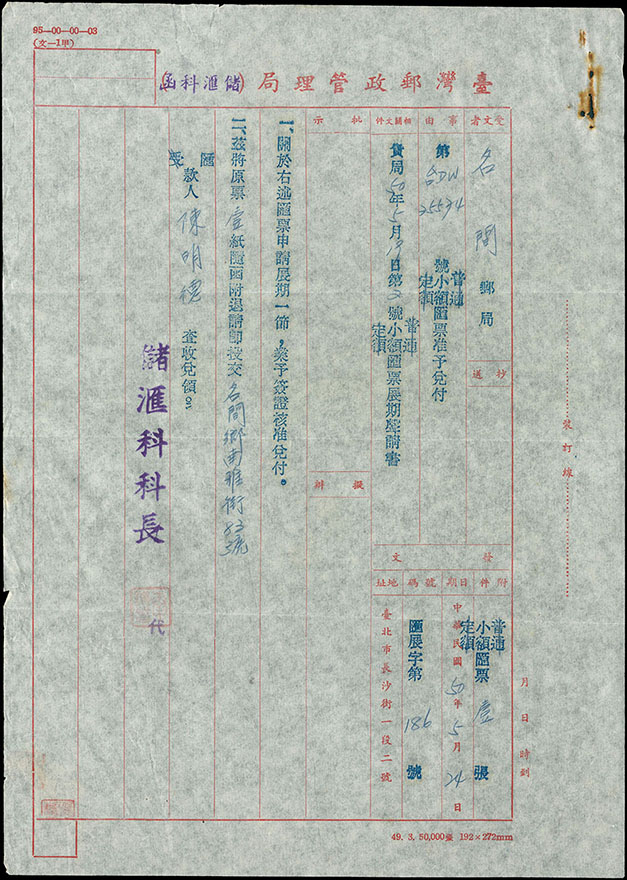 95—00—00—03
(文—1甲)
臺灣郵政管理局(儲滙科函)
受文者
名間郵局
抄送
事由
第 25574 號普通 定額 小額匯票准予兌付
相關文件
貴局50年5月 日第2號普通 定額 小額匯票展期聲請書
發文
附件
普通 定額 小額匯票壹張
日期
中華民國50年5月24日
號碼
匯展字第186號
地址
臺北市長沙街一段二號
批示
擬辦
一、關於右述匯票申請展期一節，業予簽證核准兌付。
二、茲將原票壹紙隨函附退請卽投交名間鄉南雅街83號
匯 受 款人 陳明德 查收兌領。
儲滙科科長
代
裝訂線
月日時到
49. 3. 50,000臺 192×272mm